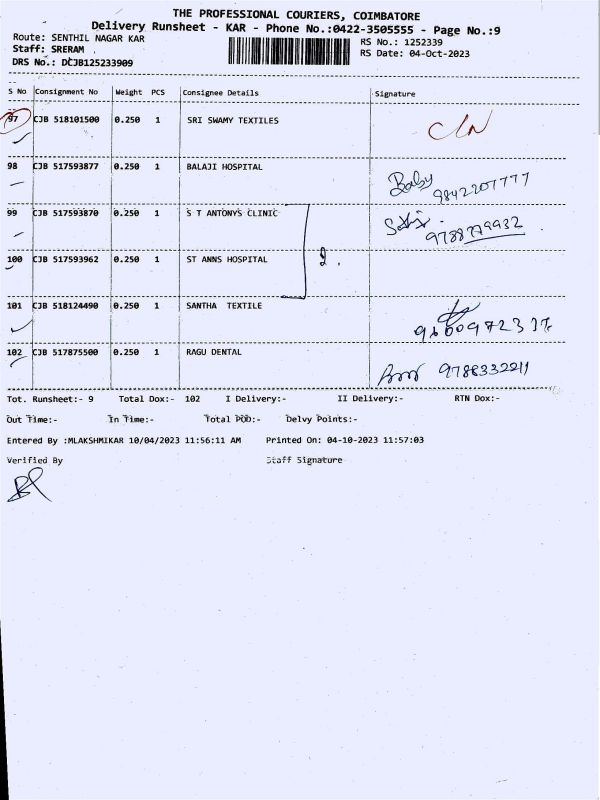 THE PROFESSIONAL COURIERS, COIMBATORE
Delivery Runsheet - KAR - Phone No.:0422-3505555 - Page No.:9
Route: SENTHIL NAGAR KAR RS No.: 1252339
Staff: SRERAM RS Date: 04-Oct-2023
DRS No.: DCJB125233909
S No Consignment No Weight PCS Consignee Details Signature
97 CJB 518101500 0.250 1 SRI SWAMY TEXTILES
98 CJB 517593877 0.250 1 BALAJI HOSPITAL Baby
9842207777
99 CJB 517593870 0.250 1 S T ANTONYS CLINIC
9788779932
100 CJB 517593962 0.250 1 ST ANNS HOSPITAL 2.
101 CJB 518124490 0.250 1 SANTHA TEXTILE
102 CJB 517875500 0.250 1 RAGU DENTAL 9788332211
Tot. Runsheet:- 9 Total Dox:- 102 I Delivery:- II Delivery:- RTN Dox:-
Out Time:- In Time:- Total POD:- Delvy Points:-
Entered By :MLAKSHMIKAR 10/04/2023 11:56:11 AM Printed On: 04-10-2023 11:57:03
Verified By Staff Signature